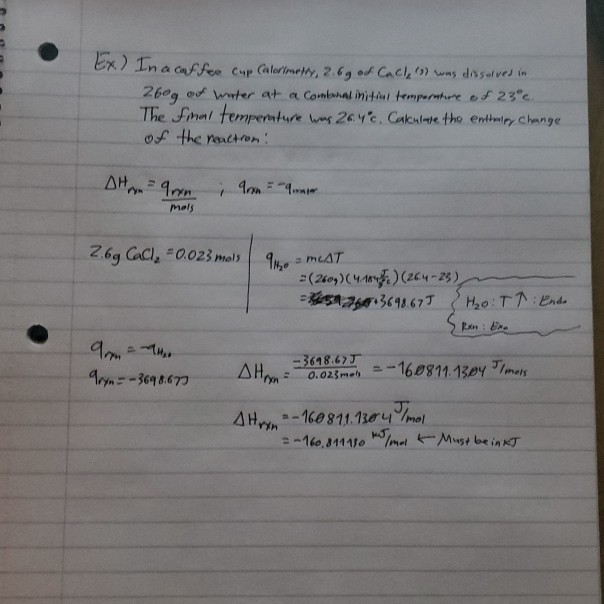 Ex) In a coffee cup Calorimetry, 2.6g of CaCl₂(s) was dissolved in
260g of water at a Combined initial temperature of 23°c.
The final temperature was 26.4°c. Calculate the enthalpy change
of the reaction:
ΔHrxn = qrxn/mols ; qrxn = -qwater
2.6g CaCl₂ = 0.023 mols
qH₂O = mcΔT
= (260g)(4.184 J/g°c)(26.4-23)
= +3698.67J
H₂O: T↑: Endo
Rxn: Exo
qrxn = -qH₂O
qrxn = -3698.67J
ΔHrxn = -3698.67J/0.023mols = -160811.1304 J/mols
ΔHrxn = -160811.1304 J/mol
= -160.811130 kJ/mol ← Must be in kJ